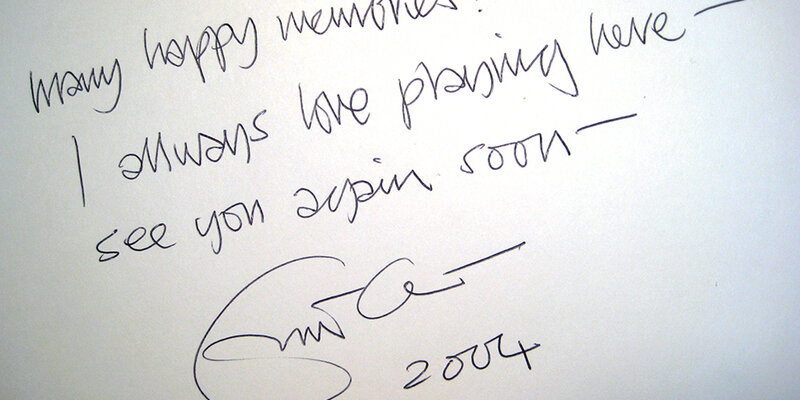 many happy memories!
I always love playing here —
see you again soon —
2004